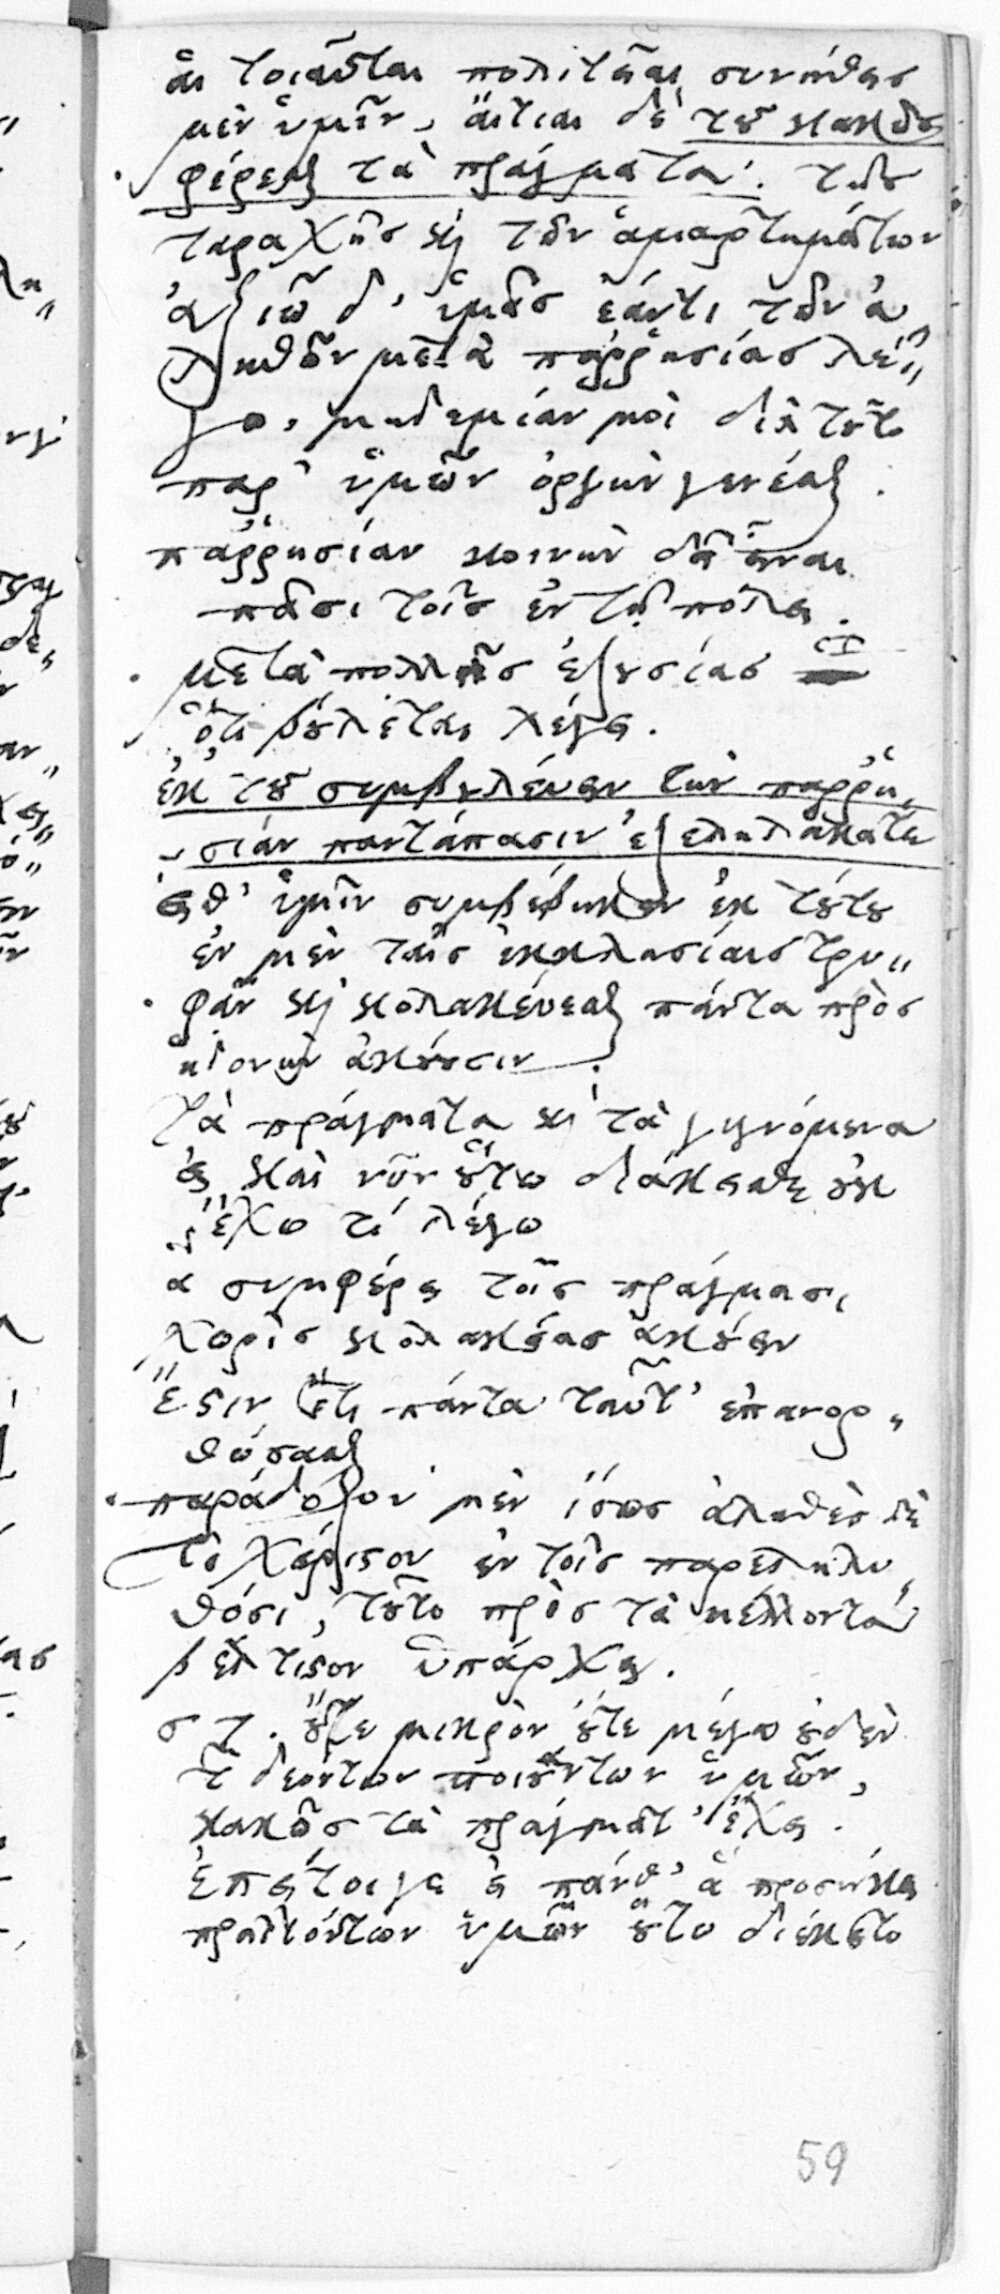 αἱ τοιαῦται πολιτεῖαι συνήθεις
μὲν ὑμῖν, αἴτιαι δὲ τοῦ κακῶς
φέρεσθαι τὰ πράγματα. τῆς
ταραχῆς καὶ τῶν ἁμαρτημάτων
ἀξιῶ δ' ὑμᾶς ἐάν τι τῶν ἀ
ληθῶν μετὰ παῤῥησίας λέ„
γω, μηδεμίαν μοι διὰ τοῦτο
παρ' ὑμῶν ὀργὴν γενέσθαι.
παῤῥησίαν κοινὴν δεῖ εἶναι
πᾶσι τοῖς ἐν τῇ πόλει.
μετὰ πολλῆς ἐξουσίας
ὅτι βούλεται λέγει.
ἐκ τοῦ συμβουλεύειν τὴν παῤῥη„
σιάν παντάπασιν ἐξεληλάκατε
εἶθ' ὑμῖν συμβέβηκεν ἐκ τούτου
ἐν μὲν ταῖς ἐκκλησίαις τρυ„
φᾶν καὶ κολακεύεσθαι πάντα πρὸς
ἡδονὴν ἀκούουσιν.
τὰ πράγματα καὶ τὰ γιγνόμενα
εἰ καὶ νῦν οὕτω διάκεισθε οὐκ
ἔχω τί λέγω
ἃ συμφέρει τοῖς πράγμασι
χωρὶς κολακείας ἀκούειν
ἔστιν ἔτι πάντα ταῦτ' ἐπανορ„
θώσασθαι
παράδοξον μὲν ἴσως ἀληθὲς δὲ
τὸ χείριστον ἐν τοῖς παρεληλυ„
θόσι, τοῦτο πρὸς τὰ μέλλοντα
βέλτιστον ὑπάρχει.
οὔτε μικρὸν οὔτε μέγα οὐδὲν
τῶν δεόντων ποιούντων ὑμῶν,
κακῶς τὰ πράγματ' ἔχει.
ἐπείτοιγε εἰ πάνθ' ἃ προσήκει
πραττόντων ὑμῶν οὕτω διέκειτο
59